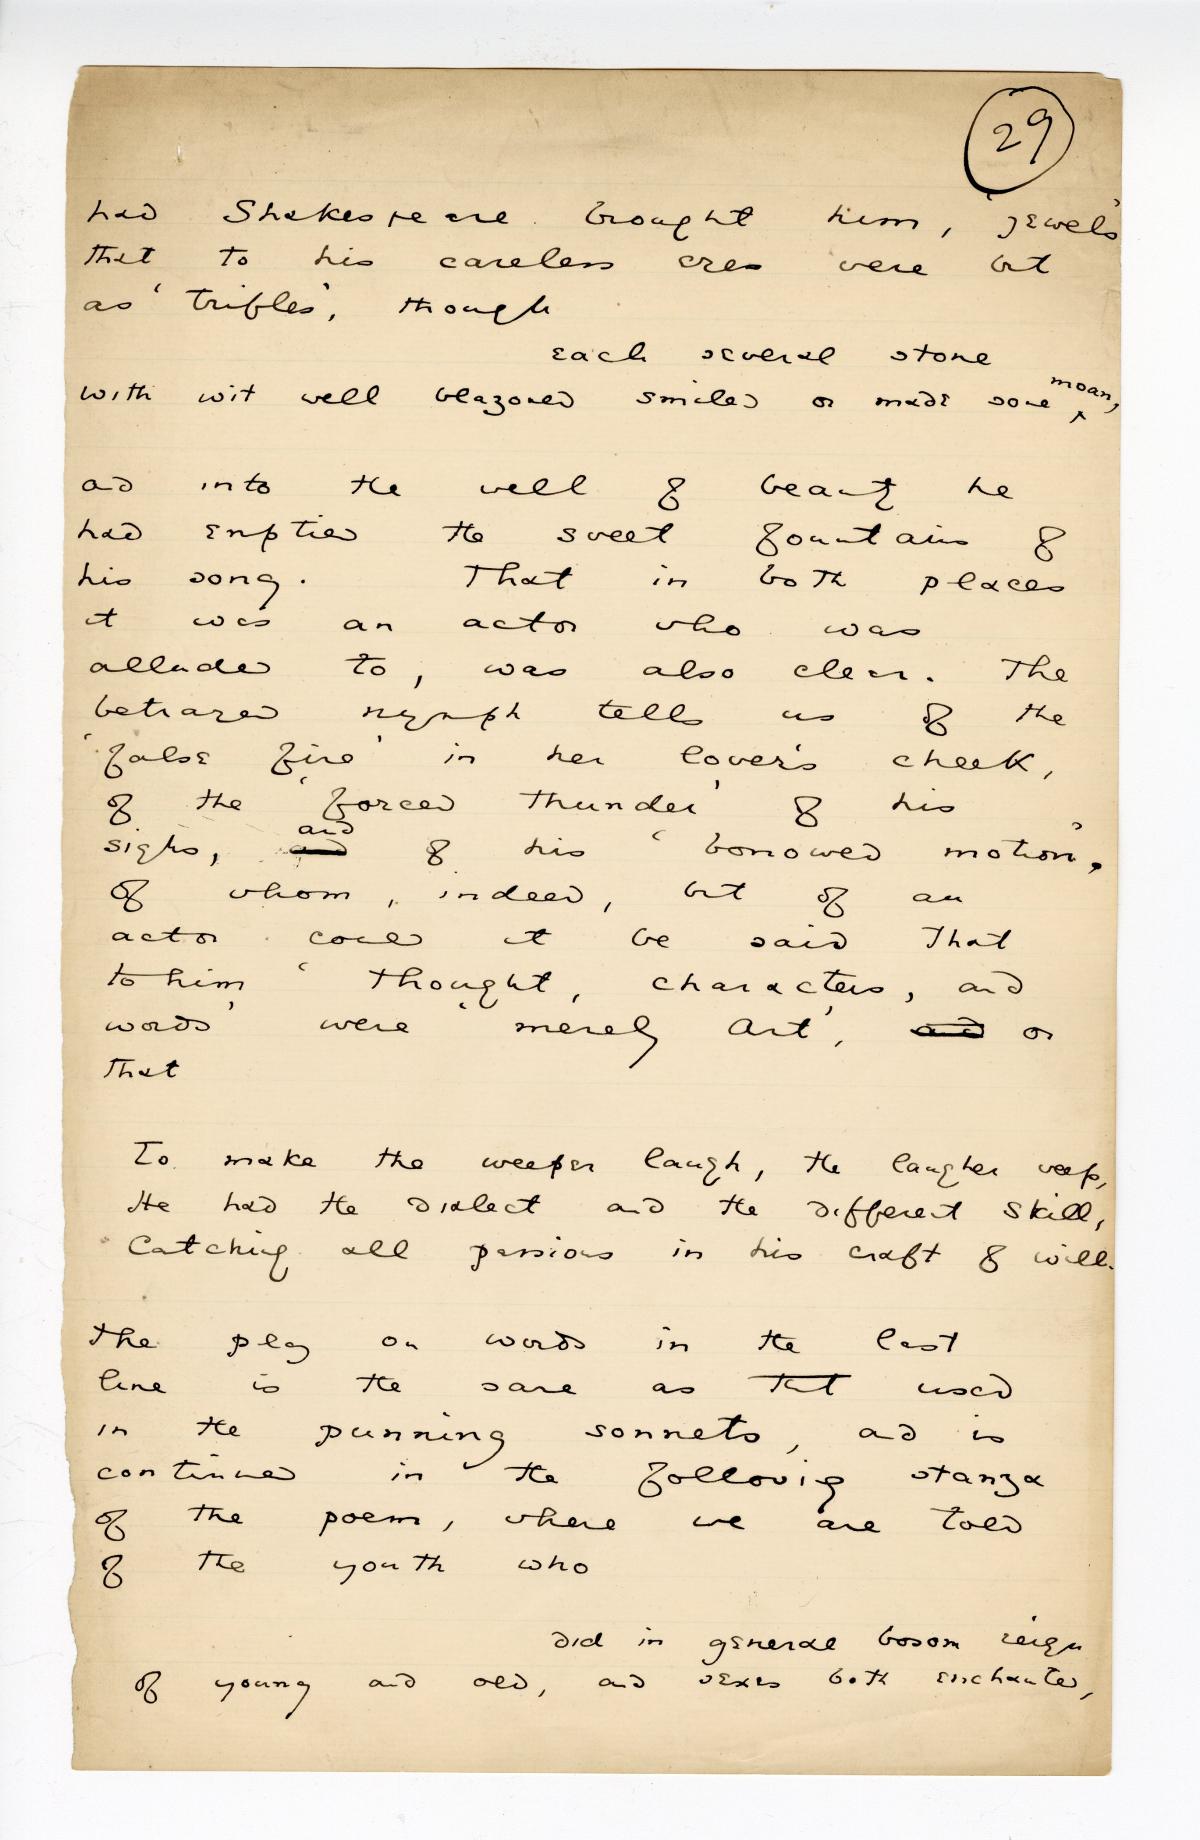 29
had Shakespeare brought him, 'jewels'
that to his careless eyes were but
as 'trifles', though
each several stone
with wit well blazoned smiled or made some moan,
and into the well of beauty he
had emptied the sweet fountains of
his song. That in both places
it was an actor who was
alluded to, was also clear. The
betrayed nymph tells us of the
'false fire' in her lover's cheek,
of the 'forced thunder' of his
sighs, and of his 'borrowed motion',
of whom, indeed, but of an
actor could it be said that
to him 'thought, characters, and
words' were 'merely Art', and or
that
To make the weeper laugh, the laugher weep,
He had the dialect and the different skill,
Catching all passions in his craft of will.
The play on words in the last
line is the same as that used
in the punning sonnets, and is
continued in the following stanza
of the poem, where we are told
of the youth who
did in general bosom reign
of young and old, and sexes both enchanted,